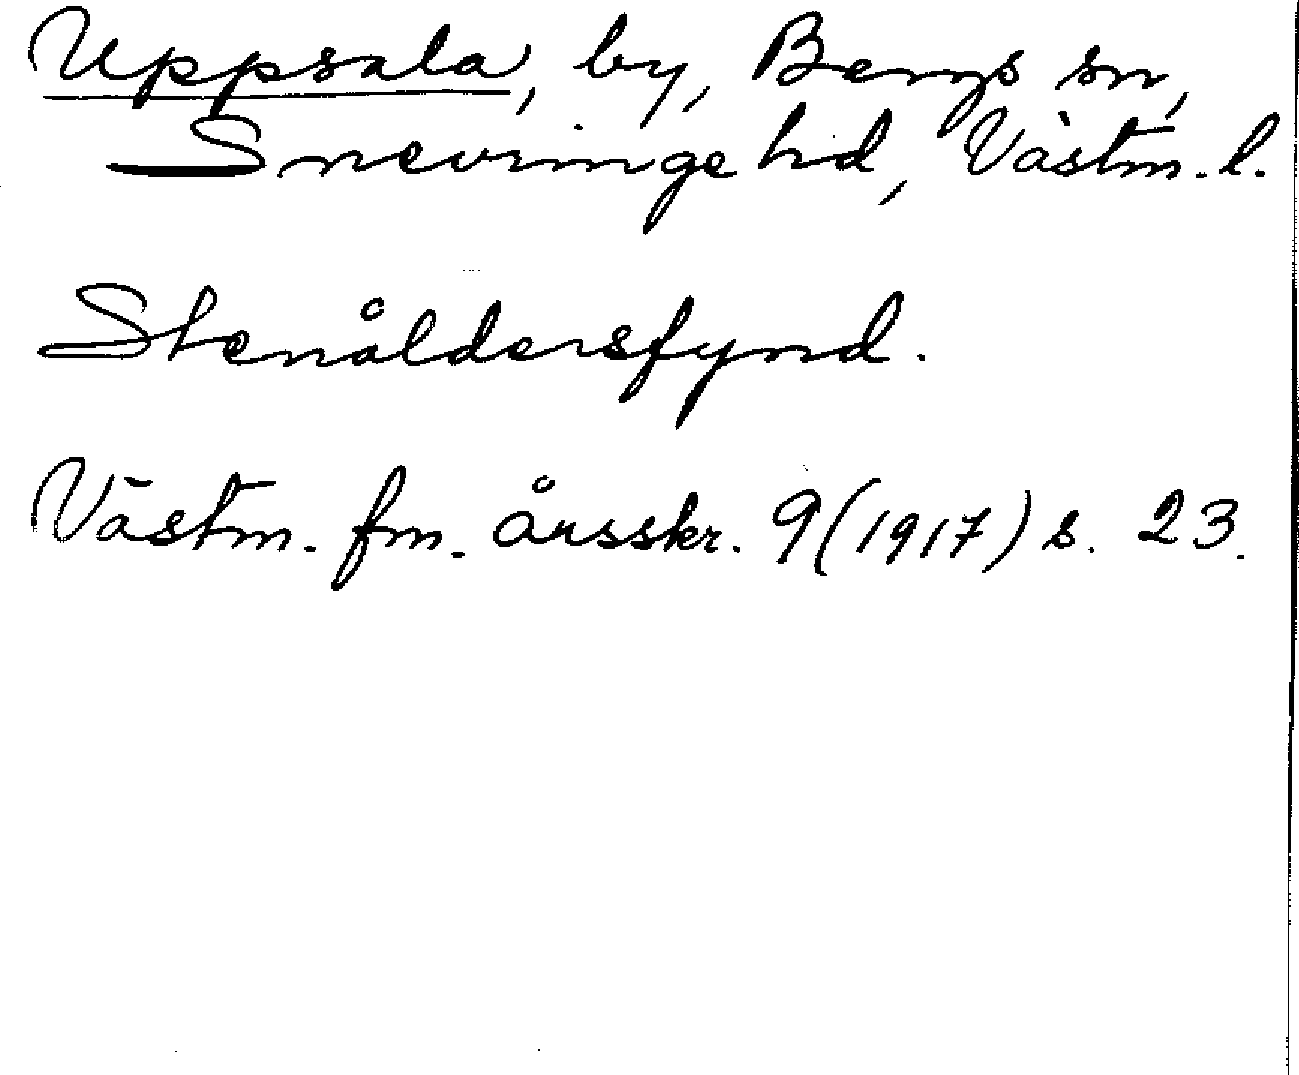 Uppsala, by, Bergs sn,
Snevringe hd, Västm. l.
Stenåldersfynd.
Västm. fm. årsskr. 9 (1917) s. 23.